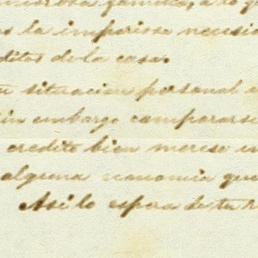 familia, a lo q
la imperiosa necesid
ditos de la casa.
situacion personal e
in embargo compararse
credito bien merece un
alguna economia que
Asi lo espera de tu r